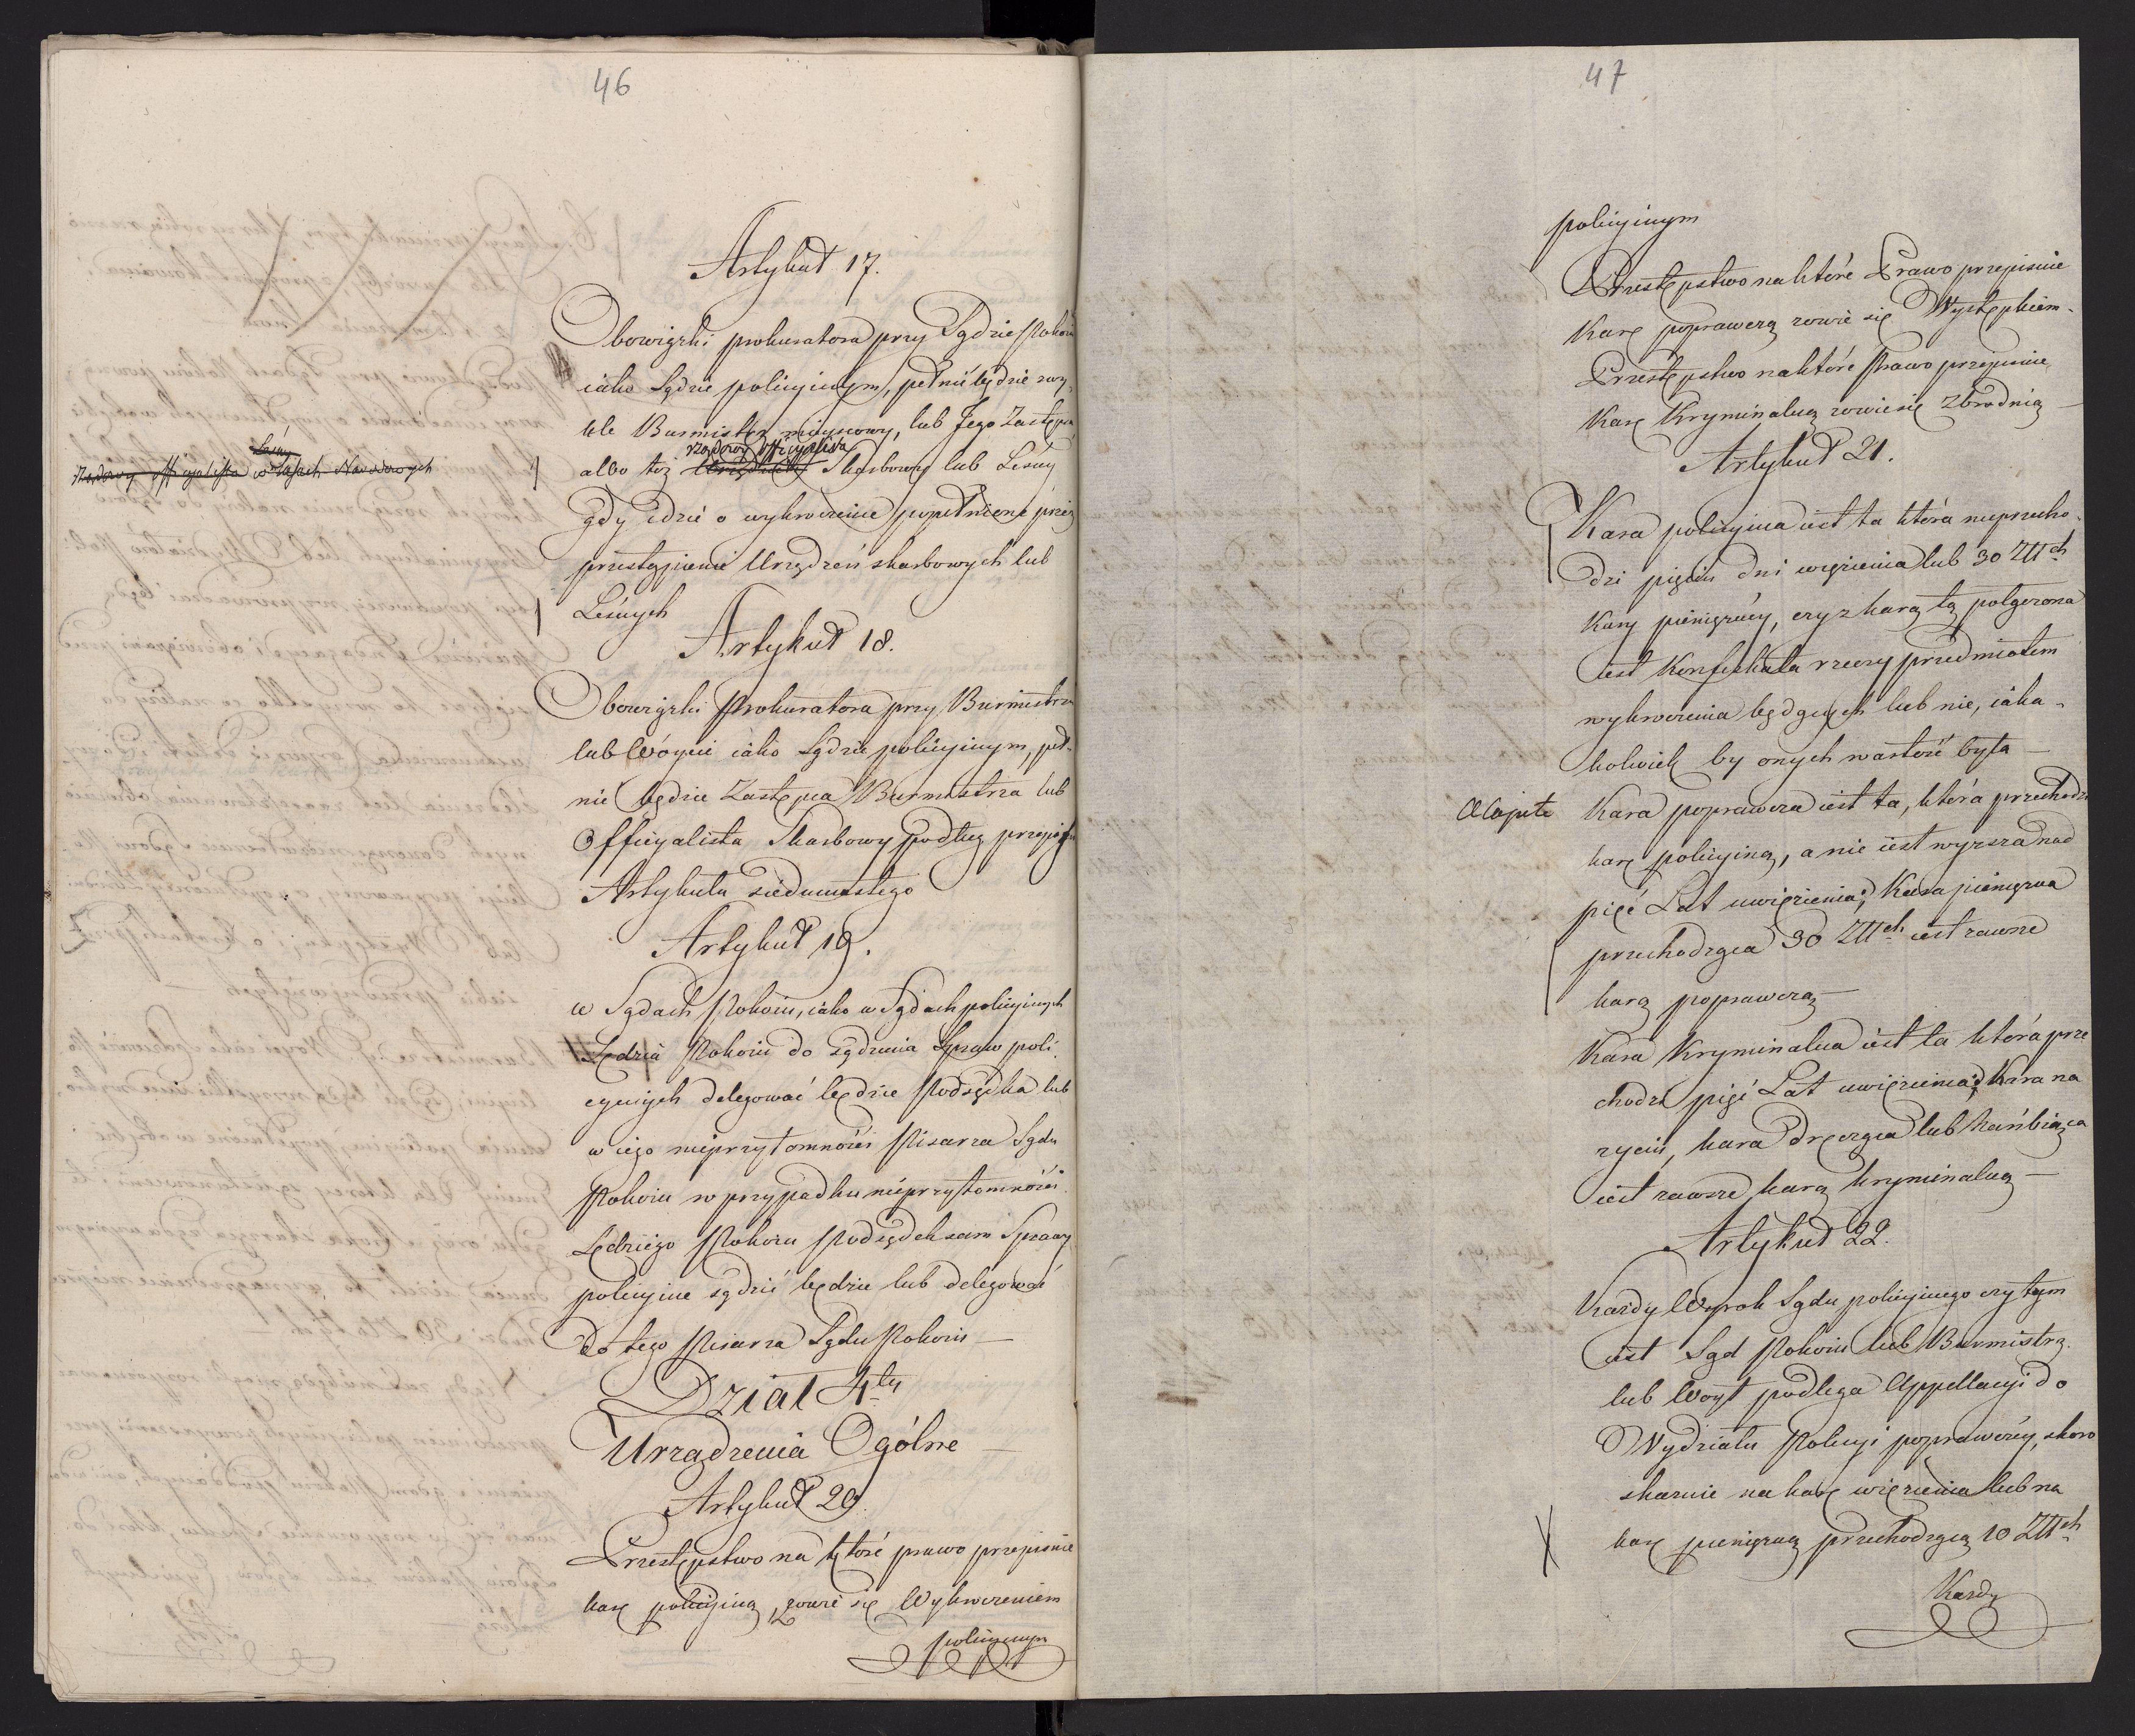 46
Artykuł 17.
Obowiązki prokuratora przy Sądzie Pokoiu
iako Sądzie policyinym, pełnić będzie zwy-
kle Burmistrz mieyscowy, lub Jego Zastępca
Rządowy Officyalista
albo też Urzędnik Skarbowy lub Leśny
Leśny
Rządowy Officyalista w Lasach Narodowych
gdy idzie o wykroczenie popełnione przez
przestąpienie Urządzeń skarbowych lub
Leśnych
Artykuł 18.
Obowiązki Prokuratora przy Burmistrzu
lub Wóycie iako Sądzie policyinym, peł-
nić będzie Zastępca Burmistrza lub
Officyalista Skarbowy podług przepisu
Artykułu siedmnastego
Artykuł 19.
w Sądach Pokoiu, iako w Sądach policyinych
Sędzia Pokoiu do sądzenia Spraw poli-
cyinych delegować będzie Podsędka lub
w iego nieprzytomności Pisarza Sądu
Pokoiu w przypadku nieprzytomności
Sędziego Pokoiu Podsędek sam Sprawy
policyine sądzić będzie lub delegować
do tego Pisarza Sądu Pokoiu —
Dział 4ty
Urządzenia Ogólne —
Artykuł 20.
Przestępstwo na które prawo przepisuie
karę policyiną, zowie się Wykroczeniem
policyinym
47
policyinym
Przestępstwo na które Prawo przepisuie
Karę poprawczą zowie się Występkiem -
Przestępstwo na które Prawo przepisuie
Karę Kryminalną zowie się Zbrodnią —
Artykuł 21.
Kara policyina iest ta która nieprzecho-
dzi pięciu dni więzienia lub 30 Złłch
Kary pieniężnéy, czy z karą tą połączona
iest Konfiskata rzeczy przedmiotem
wykroczenia będących lub nie, iaka-
kolwiek by onych wartość była —
a capite Kara poprawcza iest ta, która przechodzi
karę policyiną, a nie iest wyższa nad
pięć Lat uwięzienia; Kara pieniężna
przechodząca 30 Złłch iest zawsze
karą poprawczą —
Kara Kryminalna iest ta która prze
chodzi pięć Lat uwięzienia; Kara na
życiu, kara dręcząca lub hańbiąca
iest zawsze karą kryminalną —
Artykuł 22.
Każdy Wyrok Sądu policyinego czy tym
iest Sąd Pokoiu lub Burmistrz
lub Woyt podlega Appellacyi do
Wydziału Policyi poprawczéy, skoro
skazuie na karę więzienia lub na
karę pieniężną przechodzącą 10 Złłch
Każdy